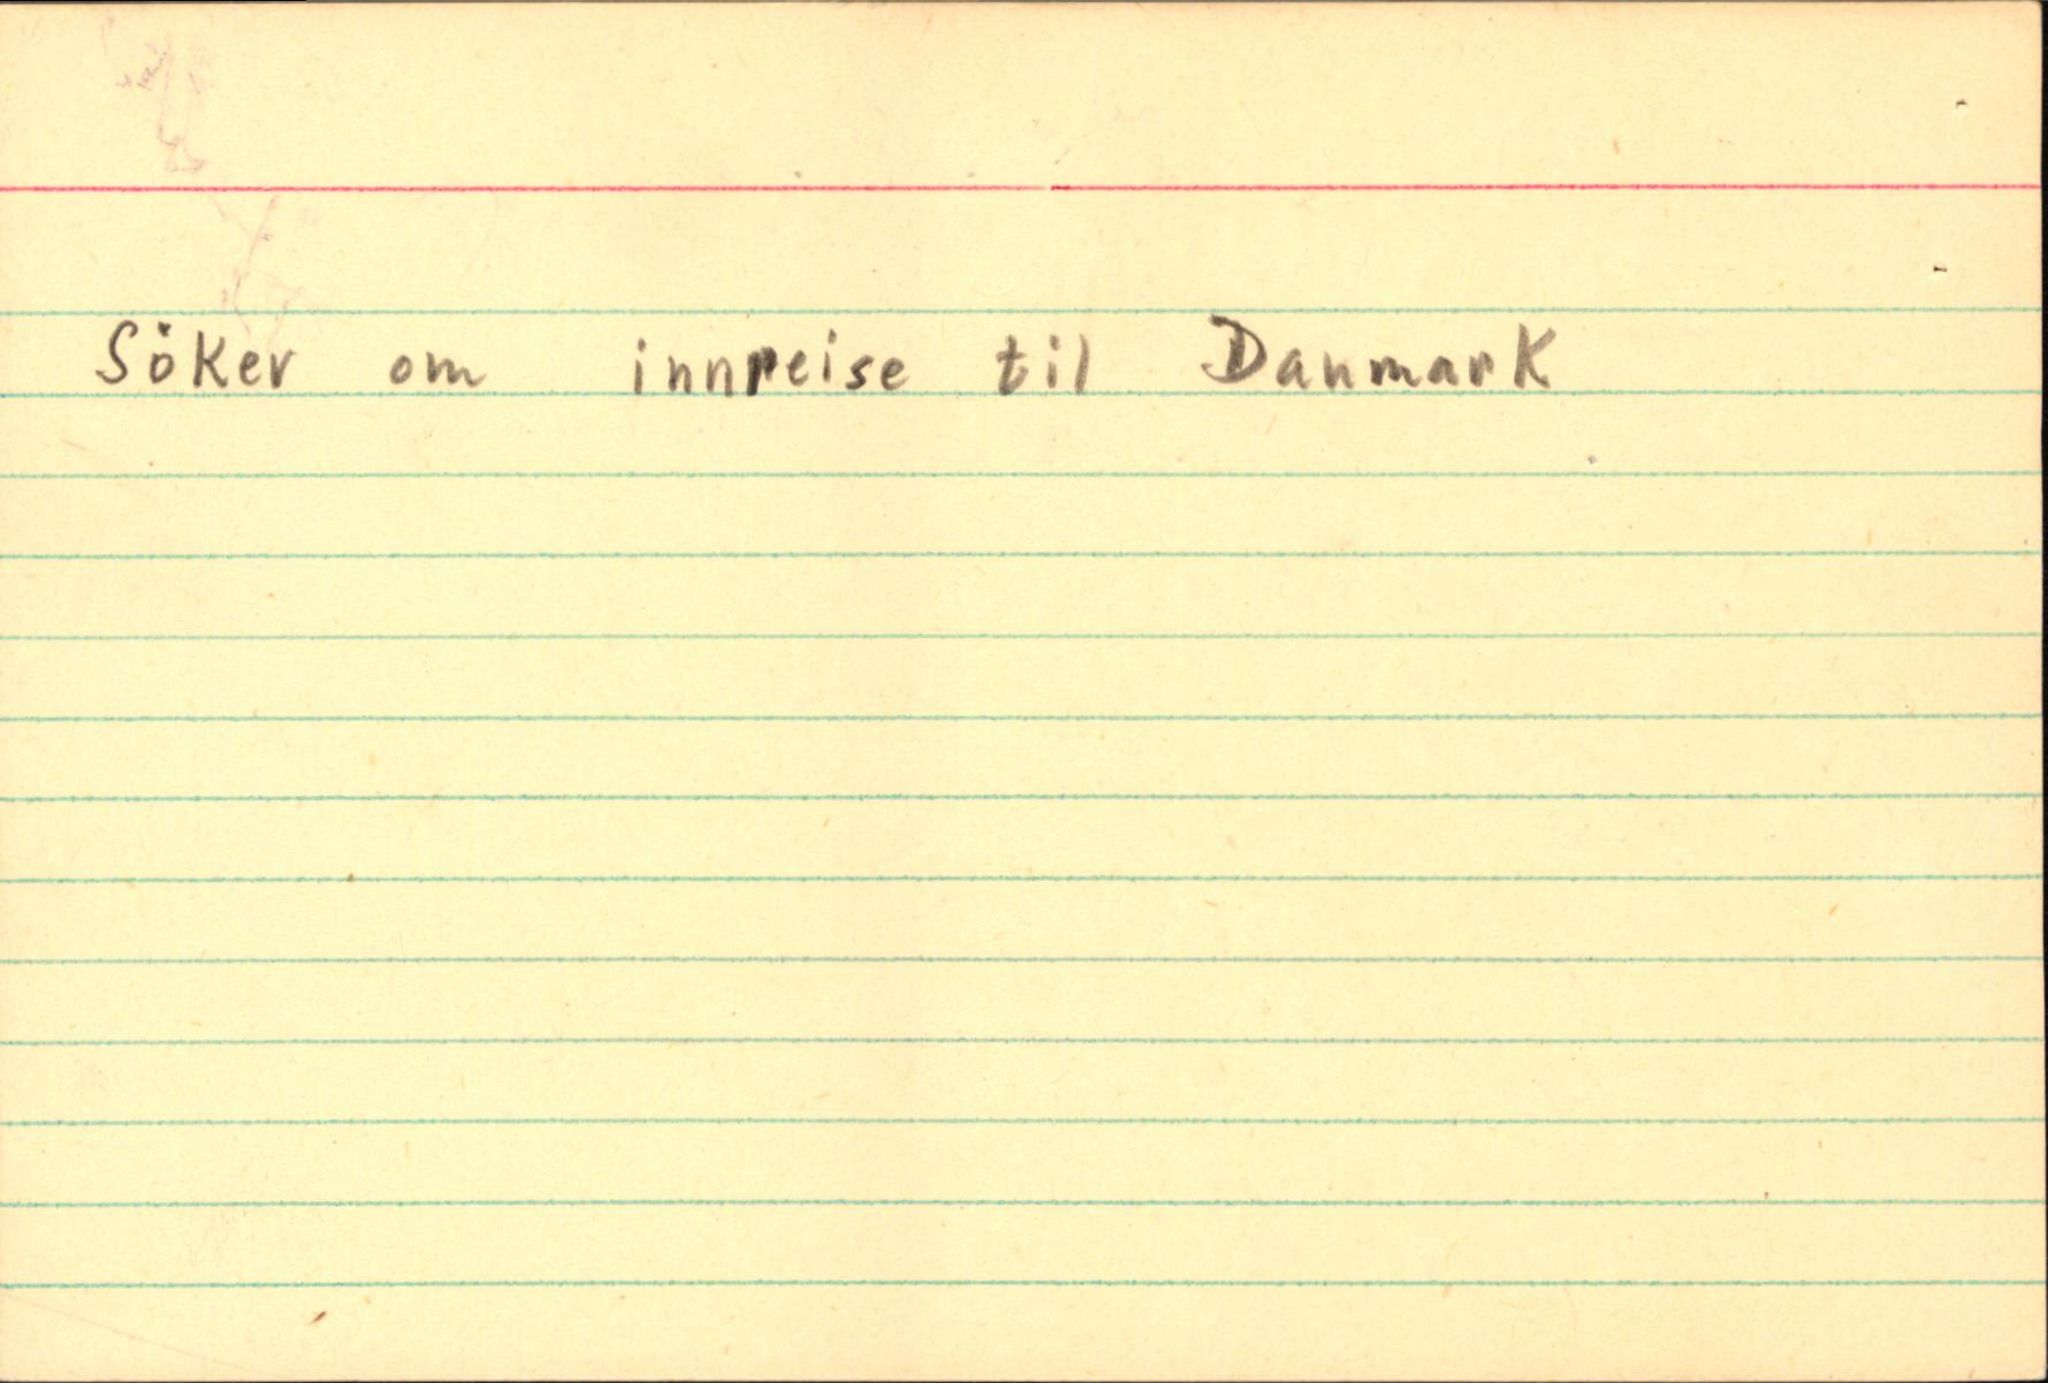 Söker om innreise til Danmark